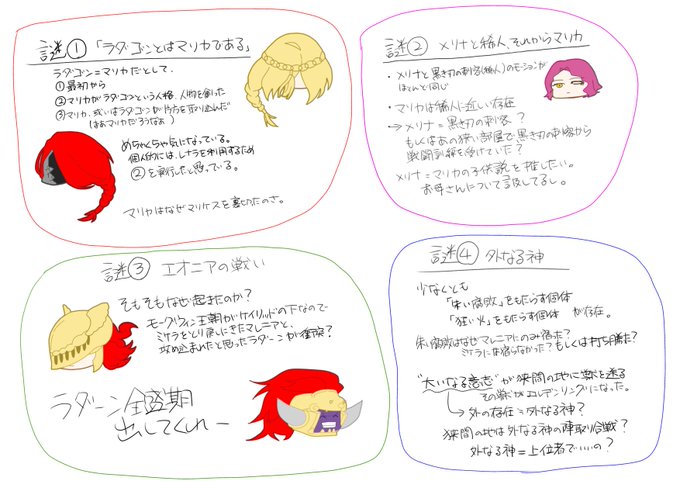 謎① 「ラダゴンとはマリカである」
ラダゴン=マリカだとして、
①最初から
②マリカがラダゴンという人格、人物を創った
③マリカ、或いはラダゴンが片方を取り込んだ
(まあマリカだろうなぁ)
めちゃくちゃ気になっている。
個人的には、レナラを利用するため
②を実行したと思っている。
マリカはなぜマリケスを裏切ったのさ。
謎② メリナと稀人、それからマリカ
・メリナと黒き刃の刺客(稀人)のモーションが
ほとんど同じ
・マリカは稀人に近しい存在
→メリナ=黒き刃の刺客?
もしくはあの狭い部屋で黒き刃の刺客から
戦闘訓練を受けていた?
メリナ=マリカの子供説を推したい。
お母さんについて言及してるし。
謎③ エオニアの戦い
そもそもなぜ起きたのか?
モーグウィン王朝がケイリッドの下なので
ミケラをとり戻しにきたマレニアと、
攻め込まれたと思ったラダーンが衝突?
ラダーン全盛期
出してくれー
謎④ 外なる神
少なくとも
「朱い腐敗」をもたらす個体
「狂い火」をもたらす個体 が存在。
朱い腐敗はなぜマレニアにのみ宿った?
ミケラには宿らなかった?もしくは打ち勝った?
"大いなる意志"が狭間の地に獣を送る
その獣がエルデンリングになった。
→外の存在=外なる神?
狭間の地は外なる神の陣取り合戦?
外なる神=上位者でいいの?